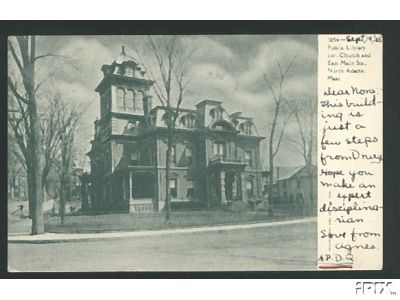 3254—Sept. 19/05
Public Library
cor. Church and
East Main Sts.,
North Adams,
Mass
dear Nora:
This build-
ing is
just a
few steps
from Drury
Hope you
make an
expert
disciplin-
arian
Love from
agnes.
A.P.D.G
iPIX